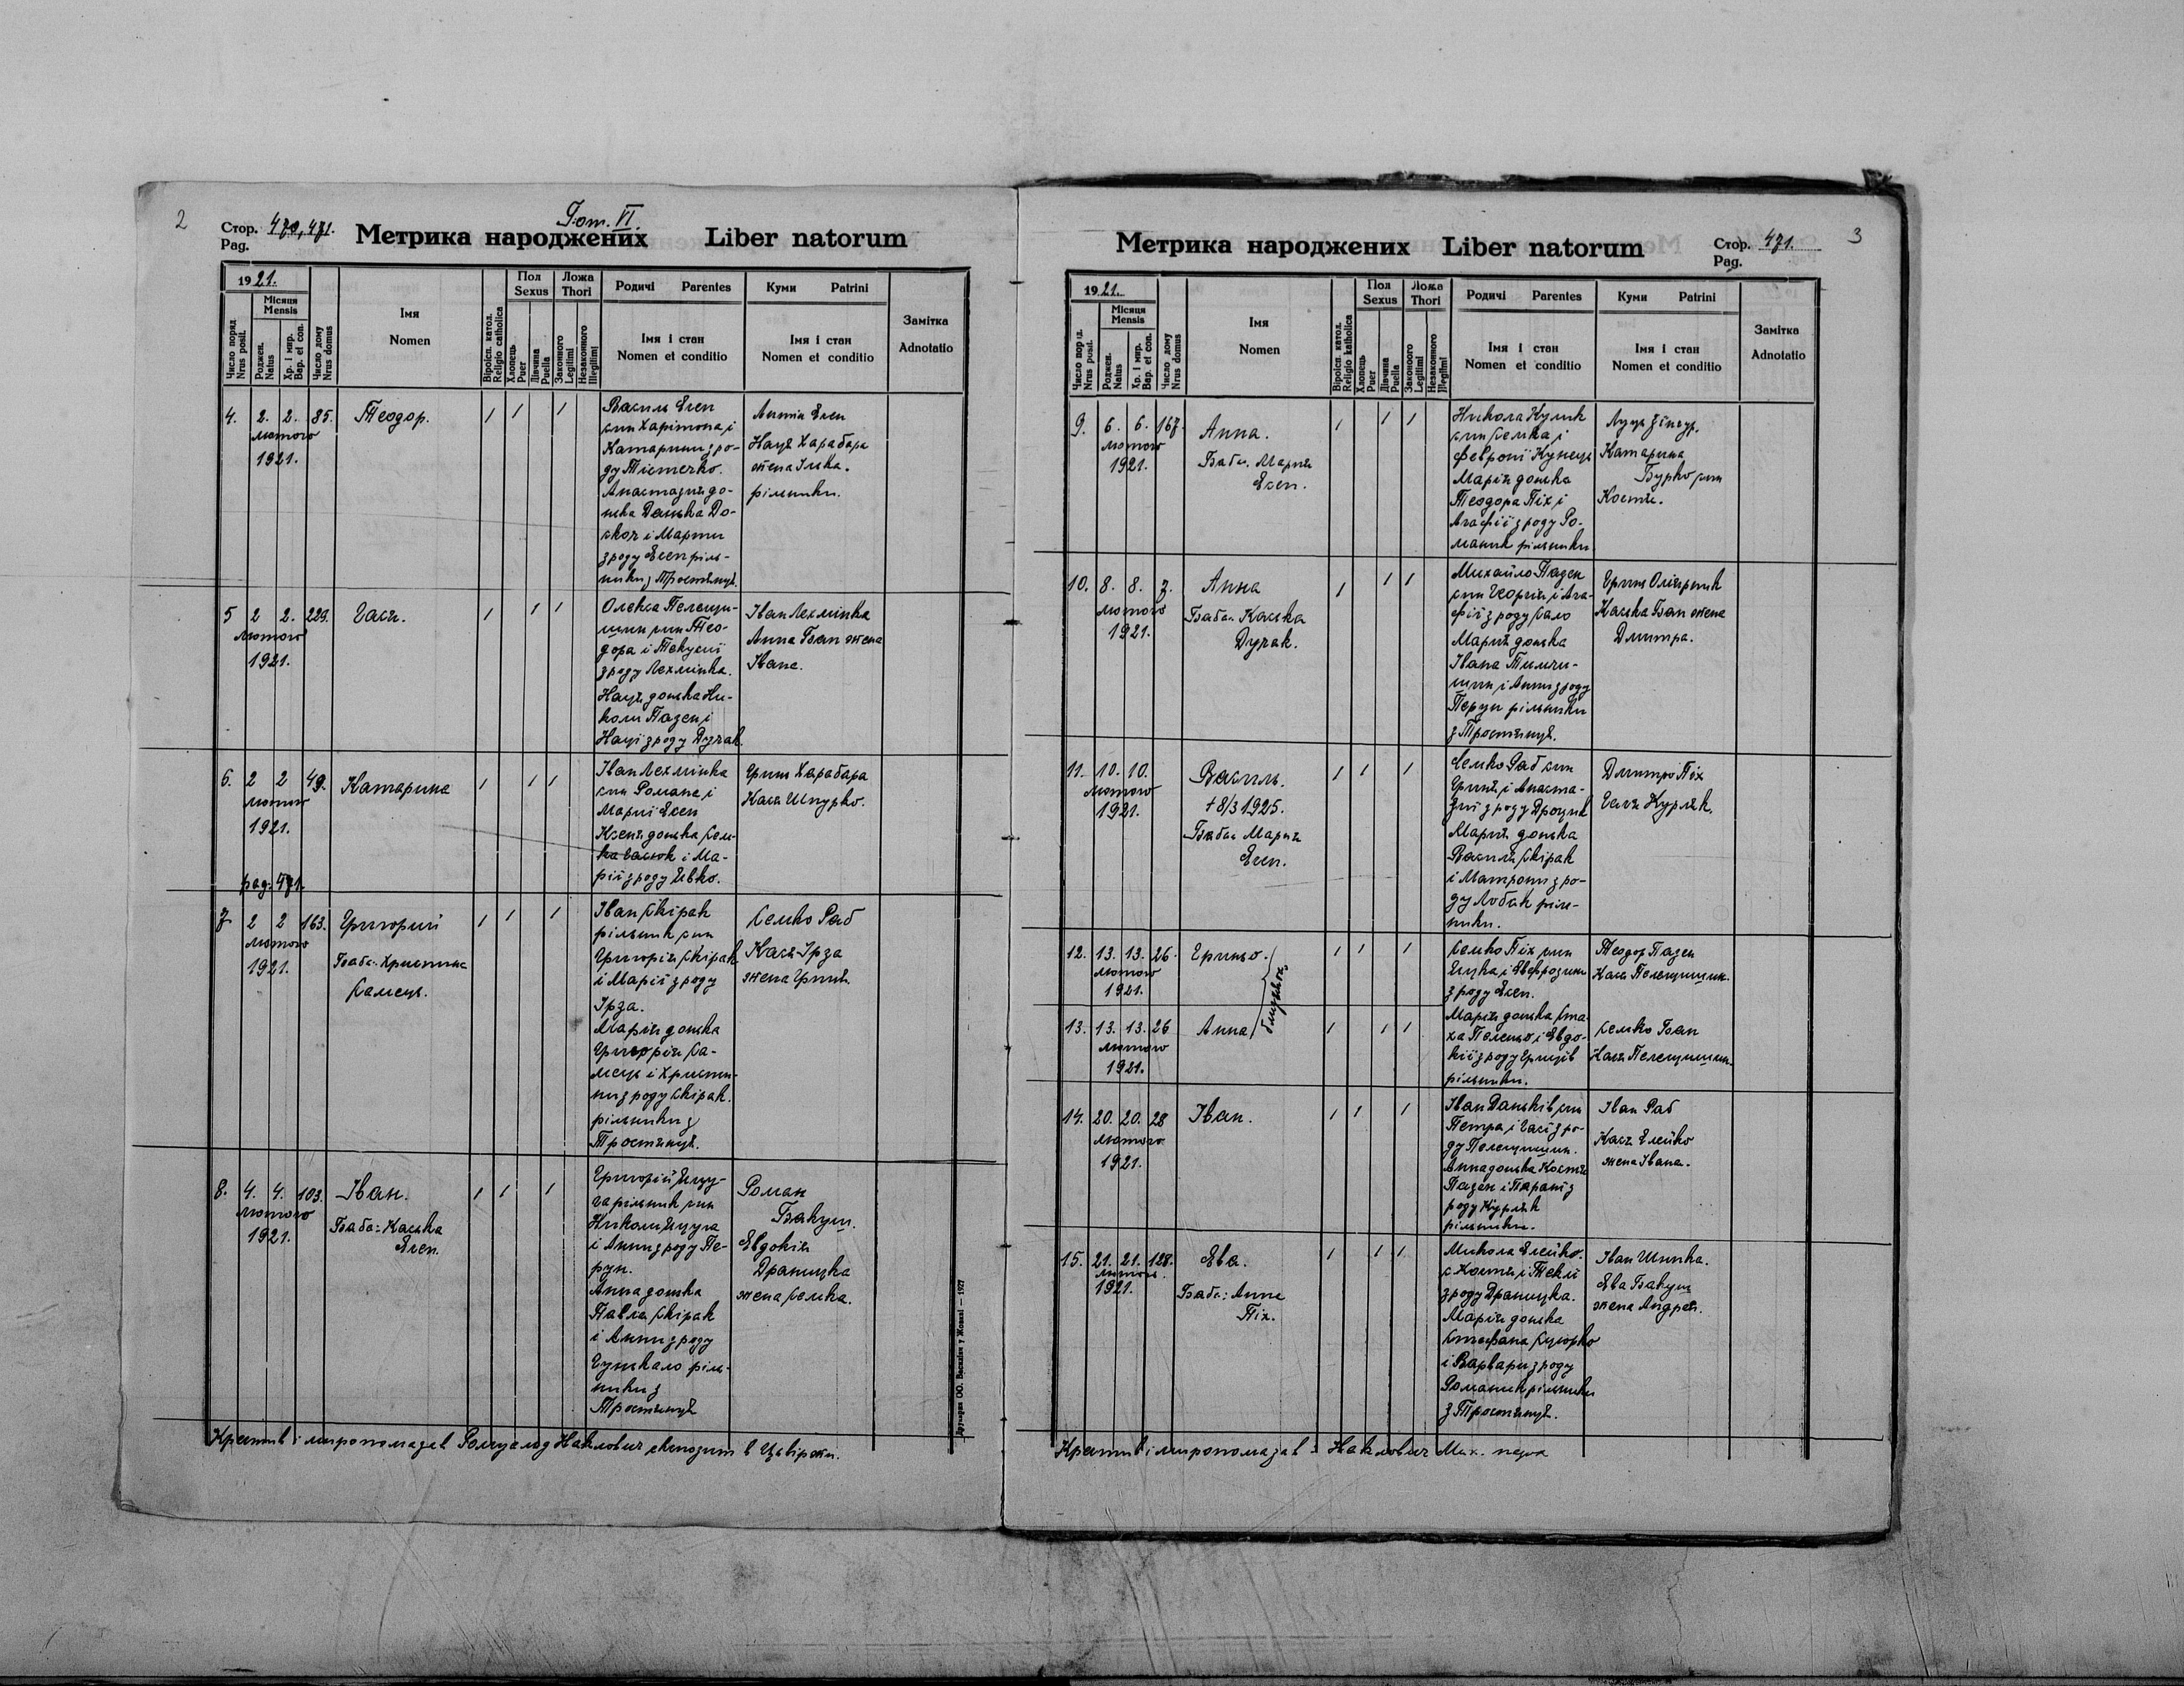 2
Стор. 470, 471.
Pag.
Tom. VI.
Метрика народжених Liber natorum
1921.
Число поряд.
Nrus posit.
Місяця
Mensis
Роджен.
Natus
Хр. і мир.
Bap. et con.
Число дому
Nrus domus
Імя
Nomen
Віроісп. катол.
Religio catholica
Пол
Sexus
Хлопець
Puer
Дівчина
Puella
Ложа
Thori
Законного
Legitimi
Незаконного
Illegitimi
Родичі Parentes
Імя і стан
Nomen et conditio
Куми Patrini
Імя і стан
Nomen et conditio
Замітка
Adnotatio
4. 2. 2. 85.
лютого
1921.
Теодор.
Василь Єлен
син Харітона і
Катарини з ро-
ду Тістечко.
Анастазія до-
нька Данька До-
скоч і Марти
з роду Єлен ріль-
ники з Тростянця.
Антін Єлен
Нація Харабара
жена Ілька.
рільники.
5 2 2. 229.
лютого
1921.
Гася.
Олекса Пелещи-
шин син Тео-
дора і Текуні
з роду Лехмінка.
Нація донька Ни-
коли Пазен і
Наці з роду Дучак.
Іван Лехмінка
Анна Бзан жена
Івана.
6. 2 2 49.
лютого
1921.
pag. 471.
Катарина
Іван Лехмінка
син Романа і
Марії Єлен
Ксеня донька Сем-
ка Гасюк і Ма-
рії з роду Івко.
Гринь Харабара
Кася Шпурко.
7 2 2 163.
лютого
1921.
Григорий
Баба: Христина
Самець.
Іван Скірак
рільник син
Григорія Скірак
і Марії з роду
Ірза.
Марія донька
Григорія Са-
мець і Христи-
ни з роду Скірак.
рільники з
Тростянця.
Семко Раб
Кася Ірза
жена Гриня.
8. 4. 4. 103.
лютого
1921.
Іван.
Баба: Каська
Єлен.
Григорій Яцу-
га рільник син
Николи Яцуга
і Анни з роду Пе-
рун.
Анна донька
Павла Скірак
і Анни з роду
Гунькало ріль-
ники з
Тростянця
Роман
Бакуш.
Евдокія
Драницка
жена Семка.
Друкарня ОО. Василіян у Жовкві — 1927
Крестив і миропомазав Ромуальд Наклович експозит в Цівіржи.
Метрика народжених Liber natorum
Стор. 471.
Pag.
3
1921.
Число поряд.
Nrus posit.
Місяця
Mensis
Роджен.
Natus
Хр. і мир.
Bap. et con.
Число дому
Nrus domus
Імя
Nomen
Віроісп. катол.
Religio katholica
Пол
Sexus
Хлопець
Puer
Дівчина
Puella
Ложа
Thori
Законного
Legitimi
Незаконного
Illegitimi
Родичі Parentes
Імя і стан
Nomen et conditio
Куми Patrini
Імя і стан
Nomen et conditio
Замітка
Adnotatio
9. 6. 6. 167.
лютого
1921.
Анна.
Баба. Марія
Єлен.
Никола Кулик
син Семка і
Февронї Кунець
Марія донька
Теодора Піх і
Агафії з роду Ро-
маник рільники
Луць
Катарина
Бурко син
Костя.
10. 8. 8. 7.
лютого
1921.
Анна
Баба. Каська
Дучак.
Михайло Пазен
син Георгія і Ага-
фії з роду Сало
Марія донька
Івана Тимчи-
шин і Анни з роду
Перун рільники
з Тростянця.
Гринь Олірник
Каська Бзан жена
Дмитра.
11. 10. 10.
лютого
1921.
Василь.
† 8/3 1925.
Баба. Марія
Єлен.
Семко Раб син
Гриня і Анаста-
зії з роду Дроцик
Марія донька
Василя Скірак
і Матрони з ро-
ду Лобак ріль-
ники.
Дмитро Піх
Гася Куряк.
12. 13. 13. 26.
лютого
1921.
Гринько.
Семко Піх син
Яцка і Евфрозини
з роду Єлен.
Теодор Пазен
Кася Пелещишин.
13. 13. 13. 26
лютого
1921.
Анна
близнюки
Марія донька Ста-
ха Пеленьо і Евдо-
кії з роду Гриців
рільники.
Семко Бзан
Кася Пелещишин.
14. 20. 20. 28
лютого
1921.
Іван.
Іван Даньків син
Петра і Гасі з ро-
ду Пелещишин.
Анна донька Костя
Пазен і Парані з
роду Куряк
рільники.
Іван Раб
Кася Єлейко
жена Івана.
15. 21. 21. 128.
лютого.
1921.
Ева.
Баба: Анна
Піх.
Микола Єлейко.
с. Костя і Теклі
з роду Драницка.
Марія донька
Стефана Сцюрко
і Варвари з роду
Романик рільники
з Тростянця.
Іван Шинка.
Ева Бакуш
жена Андрея.
Крестив і миропомазав: Наклович Мих. парох